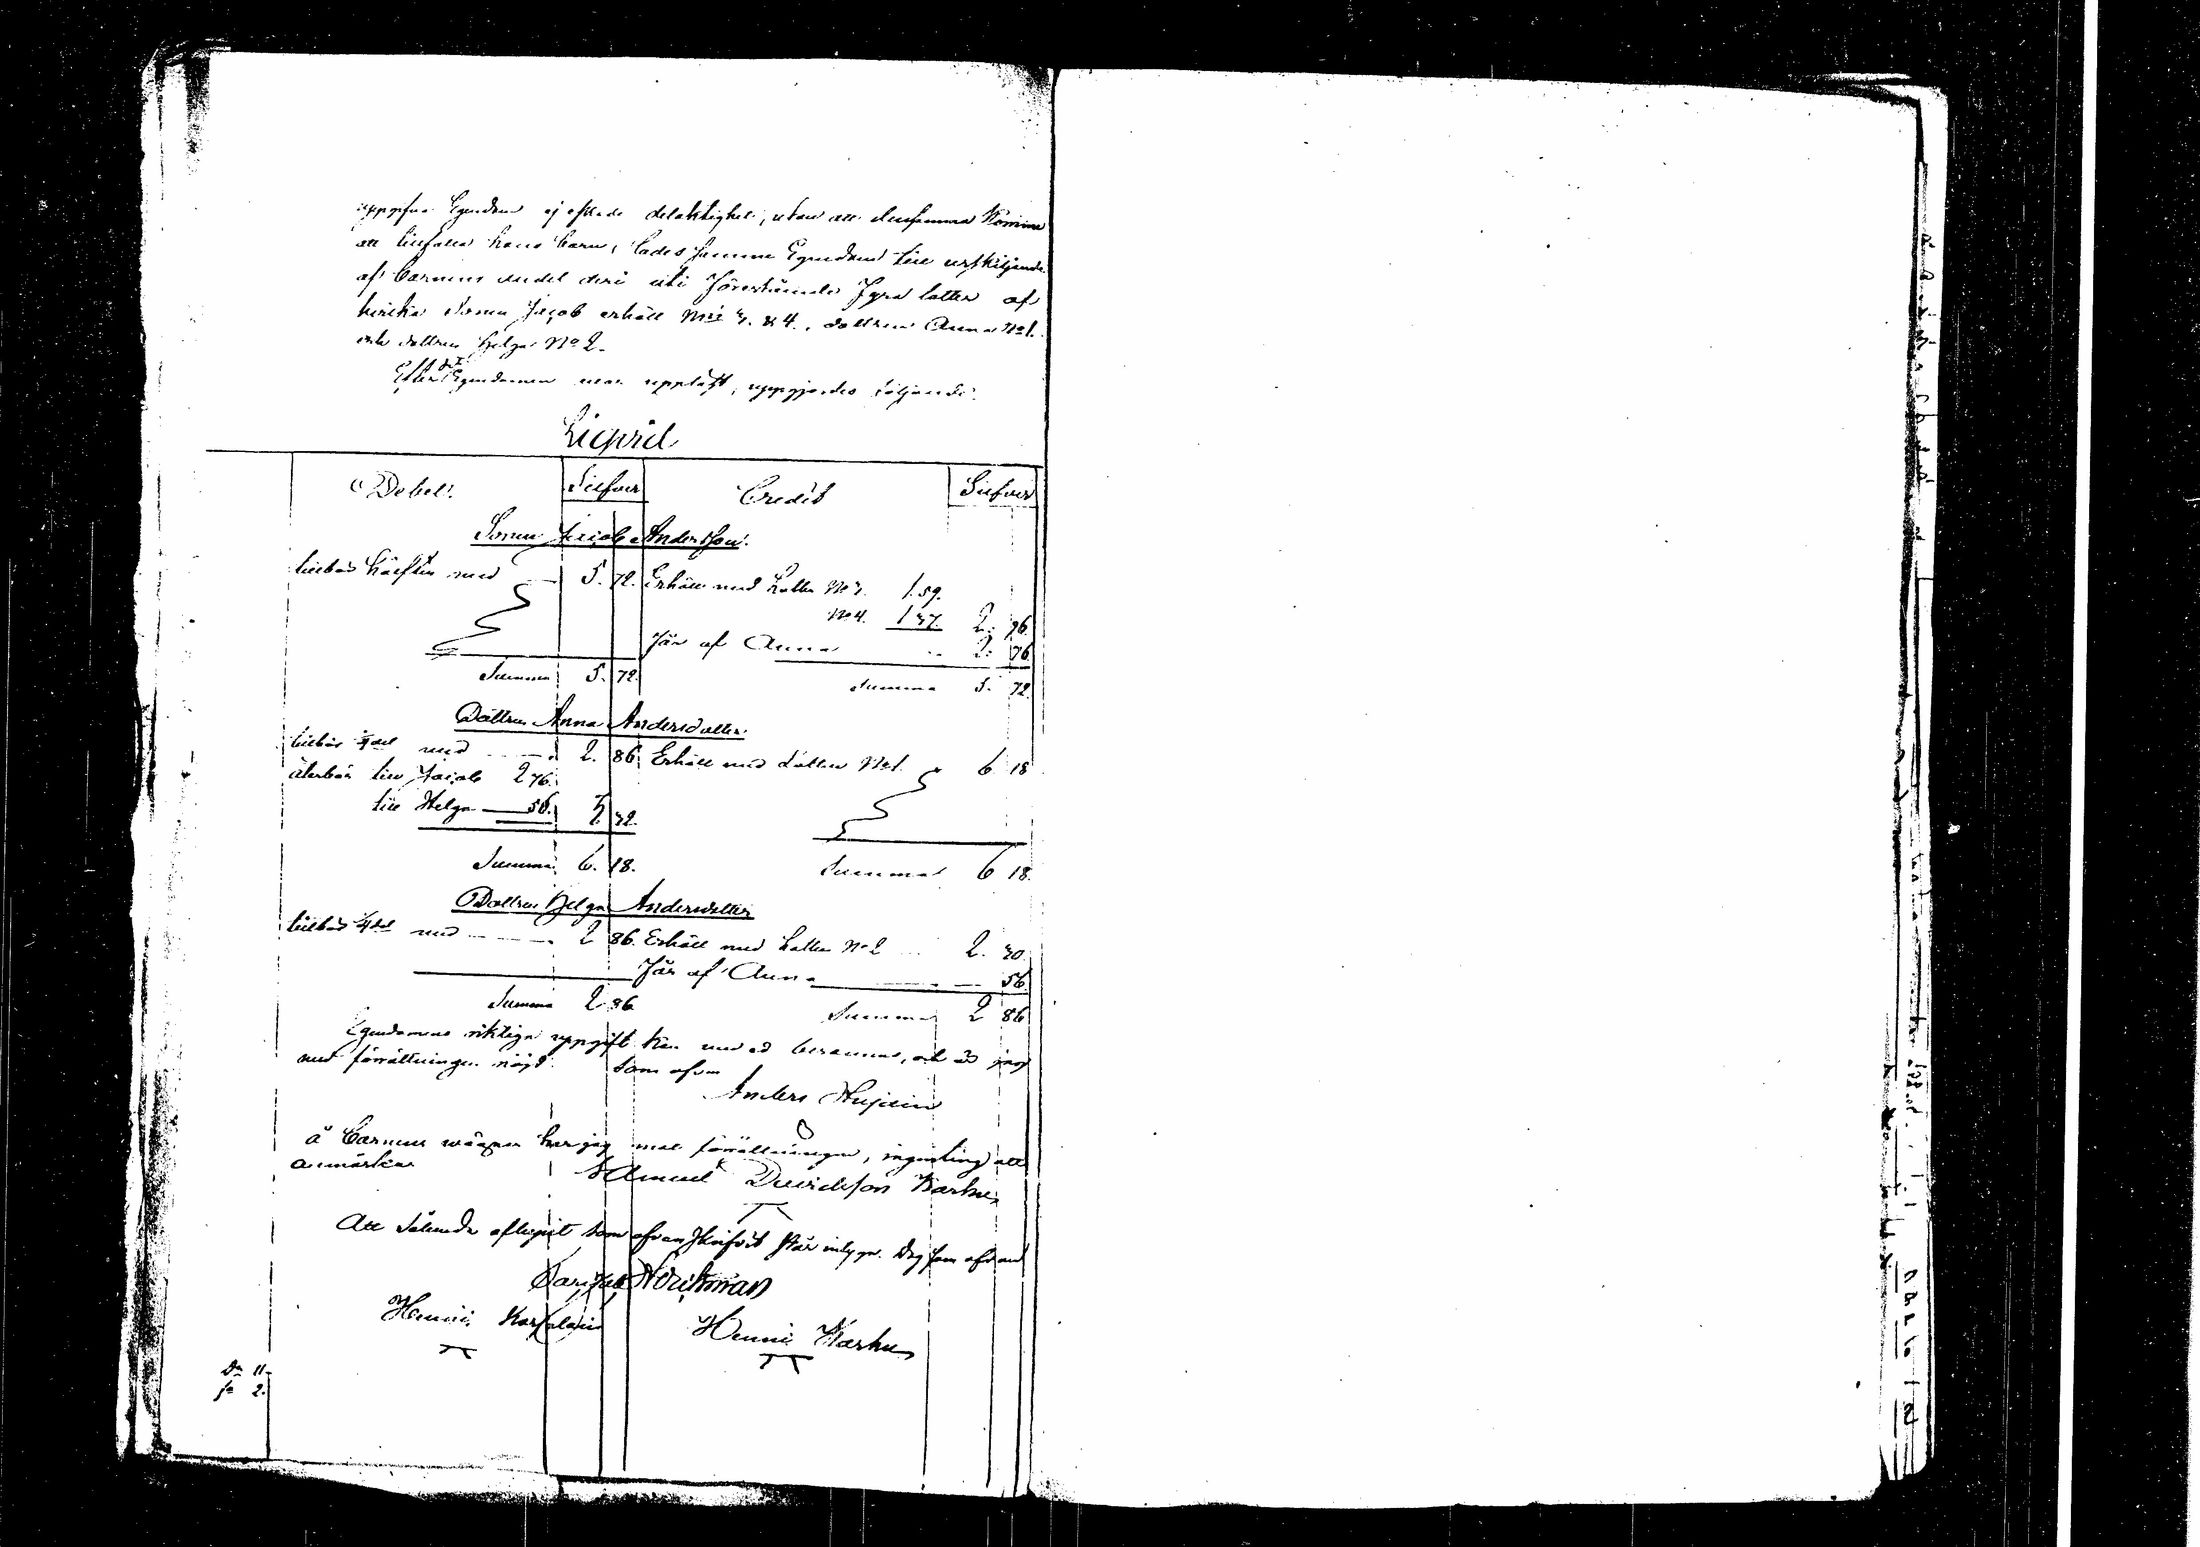 uppgifna Egendom ej äskade delaktighet, utan att densamma Komme
att tillfalla hans barn, lades samma Egendom till urskiljande
af barnens andel deri uti förestående fyra lotter af
hvilka Sonen Jacob erhöll N:ris 3. & 4., dottren Anna N:o 1.
och dottren Helga N:o 2.
Efter det Egendomen var uppläst, uppgjordes följande:
Liqvid
Debet. Silfver Credit Silfver
Sonen Jacob Andersson.
tillkom hälften med 5. 72. Erhöll med Lotten N:o 3. 1.59.
N:o 4. 1 37. 2. 96.
får af Anna 2. 76
Summa 5. 72. Summa 5. 72.
Dottren Anna Andersdotter.
tillkom 1/4 del med 2. 86. Erhöll med Lotten N:o 1. 6 18
återbär till Jacob 2 76.
till Helga 56. 3 32.
Summa 6. 18. Summa 6 18.
Dottren Helga Andersdotter
tillkom 1/4 del med 2 86. Erhöll med Lotten N:o 2 2. 30.
får af Anna 56.
Summa 2 86 Summa 2 86
Egendomens riktiga uppgift kan med ed besannas, och är jag
med förrättningen nöjd. som ofvan
Anders
å Barnens vägnar har jag mot förrättningen, ingenting att
anmärka
Samuel Davidsson Karhu
Att sålunda aflupit som ofvanskrifvit står intyga. Dag som ofvan
Henric Henric Karhu
D:o 11.
2.